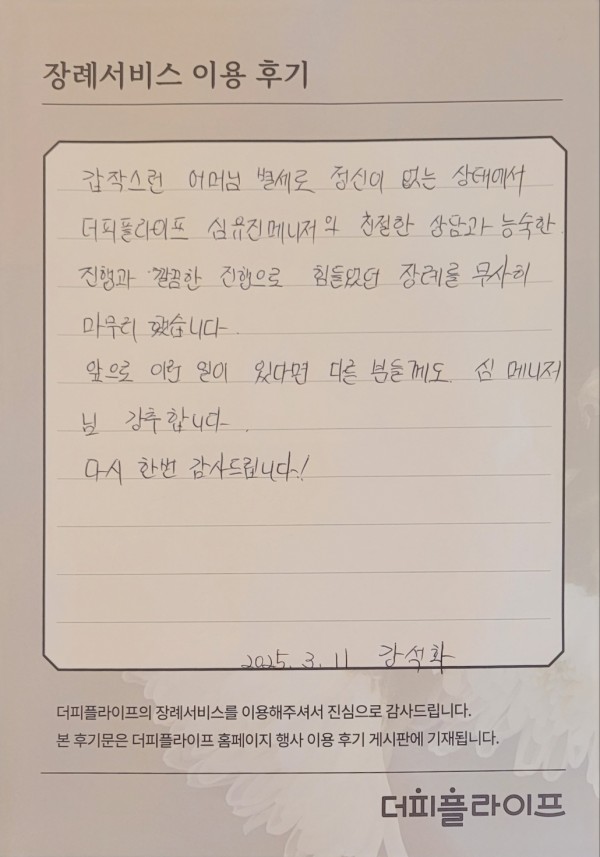 장례서비스 이용 후기
갑작스런 어머님 별세로 정신이 없는 상태에서
더피플라이프 심유진메니저의 친절한 상담과 능숙한
진행과 깔끔한 진행으로 힘들었던 장례를 무사히
마무리 했습니다.
앞으로 이런 일이 있다면 다른 분들께도 심 메니저
님 강추합니다.
다시 한번 감사드립니다!
2025. 3. 11 강석화
더피플라이프의 장례서비스를 이용해주셔서 진심으로 감사드립니다.
본 후기문은 더피플라이프 홈페이지 행사 이용 후기 게시판에 기재됩니다.
더피플라이프